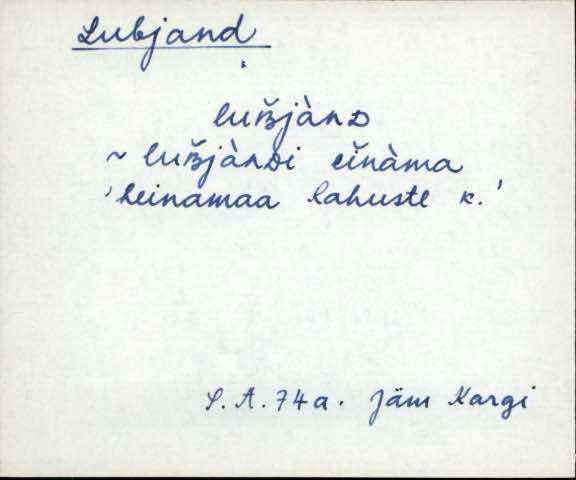 Lubjand
luʙ̆jànᴅ
~ luʙ̆jànᴅi eĭnàma
'heinamaa lahuste k.'
S. A. 74a. Jäm Kargi